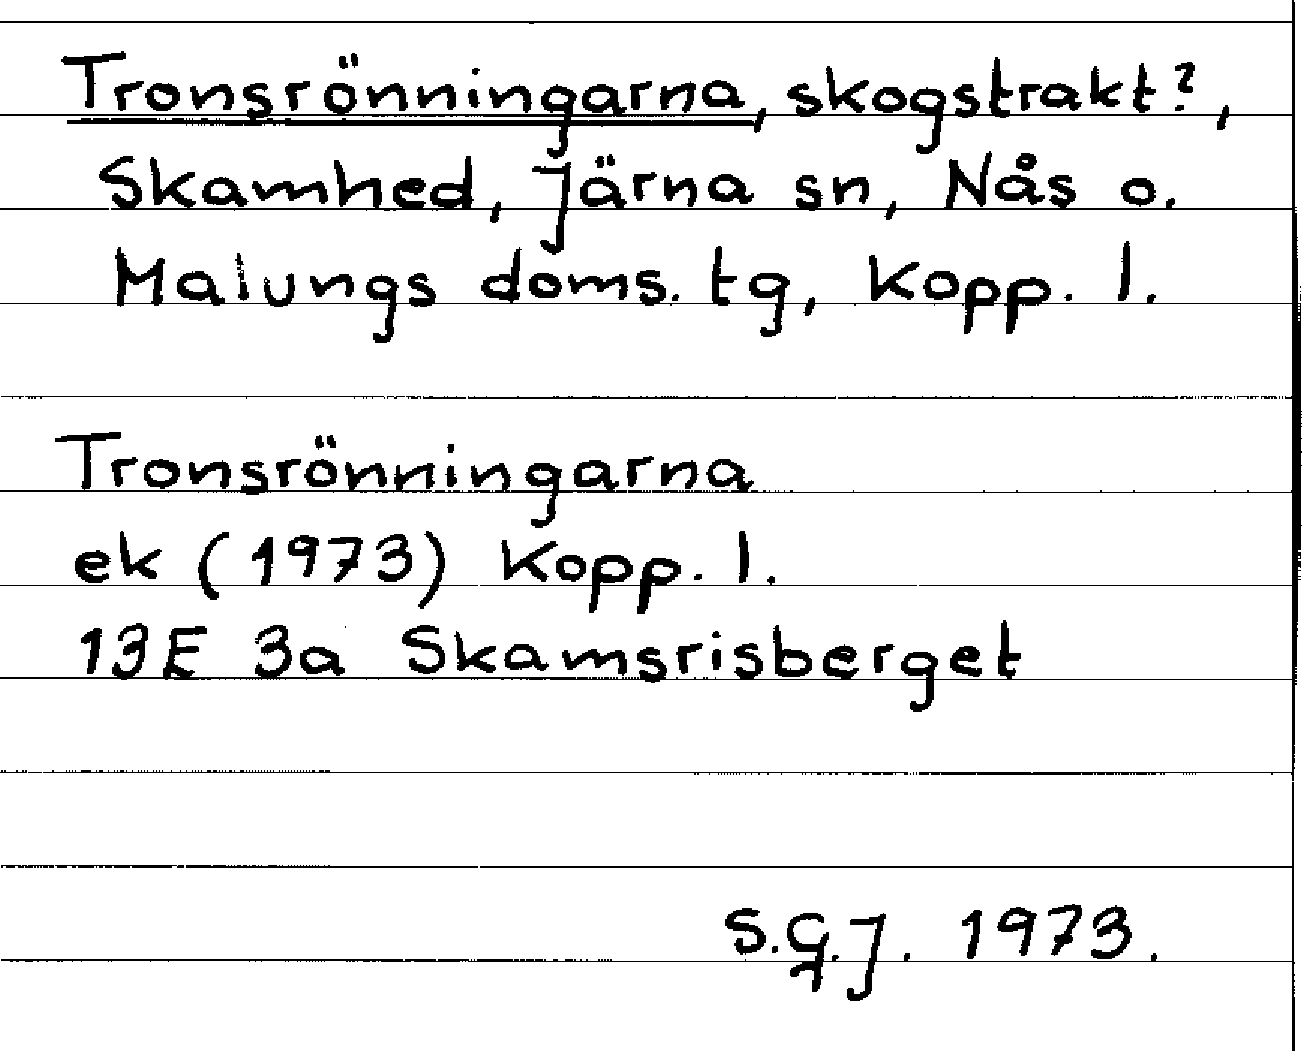 Tronsrönningarna, skogstrakt?,
Skamhed, Järna sn, Nås o.
Malungs doms. tg, Kopp. l.
Tronsrönningarna
ek (1973) Kopp. l.
13E 3a Skamsrisberget
S.G.J. 1973.